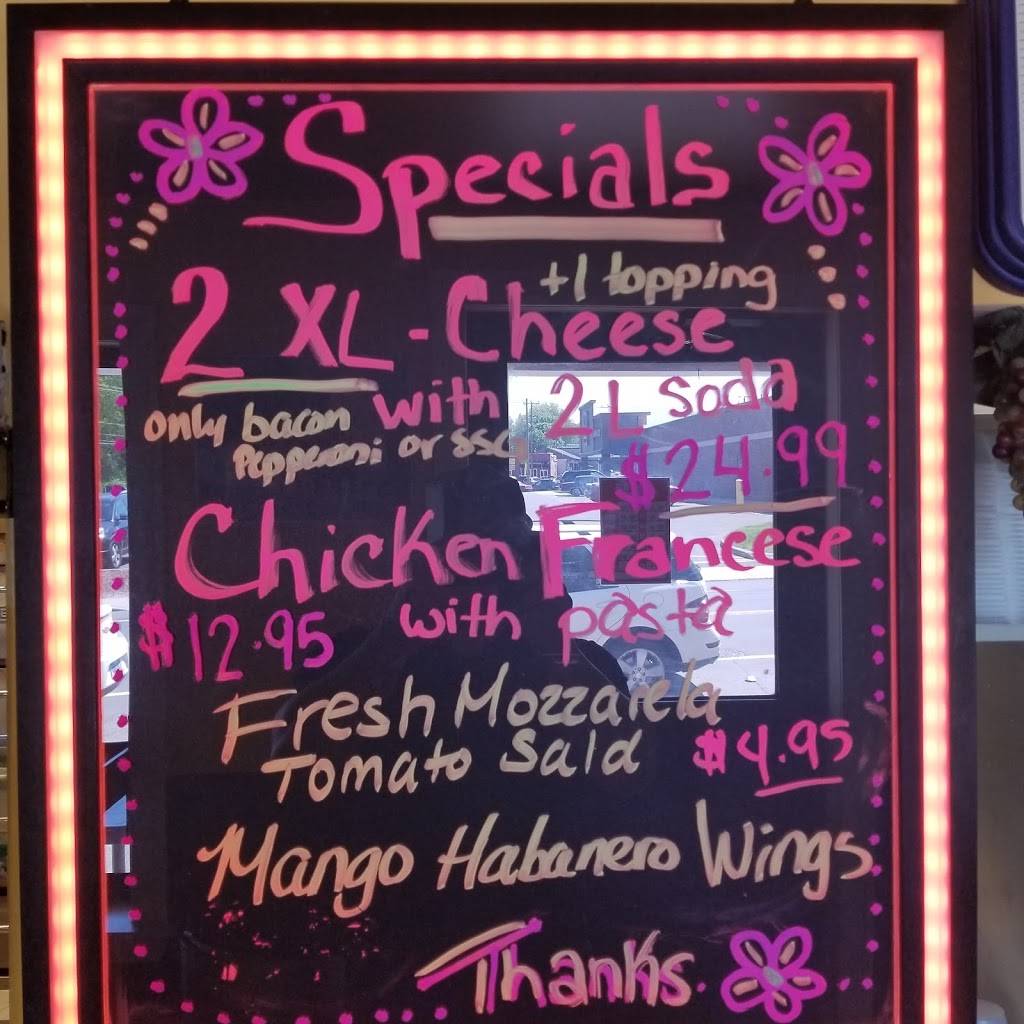 Specials
+1 topping
2 XL - Cheese
with 2 L soda
only bacon
Pepperoni or ssg
$24.99
Chicken Francese
$12.95 with pasta
Fresh Mozzarela
Tomato Sald $4.95
Mango Habanero Wings
Thanks.